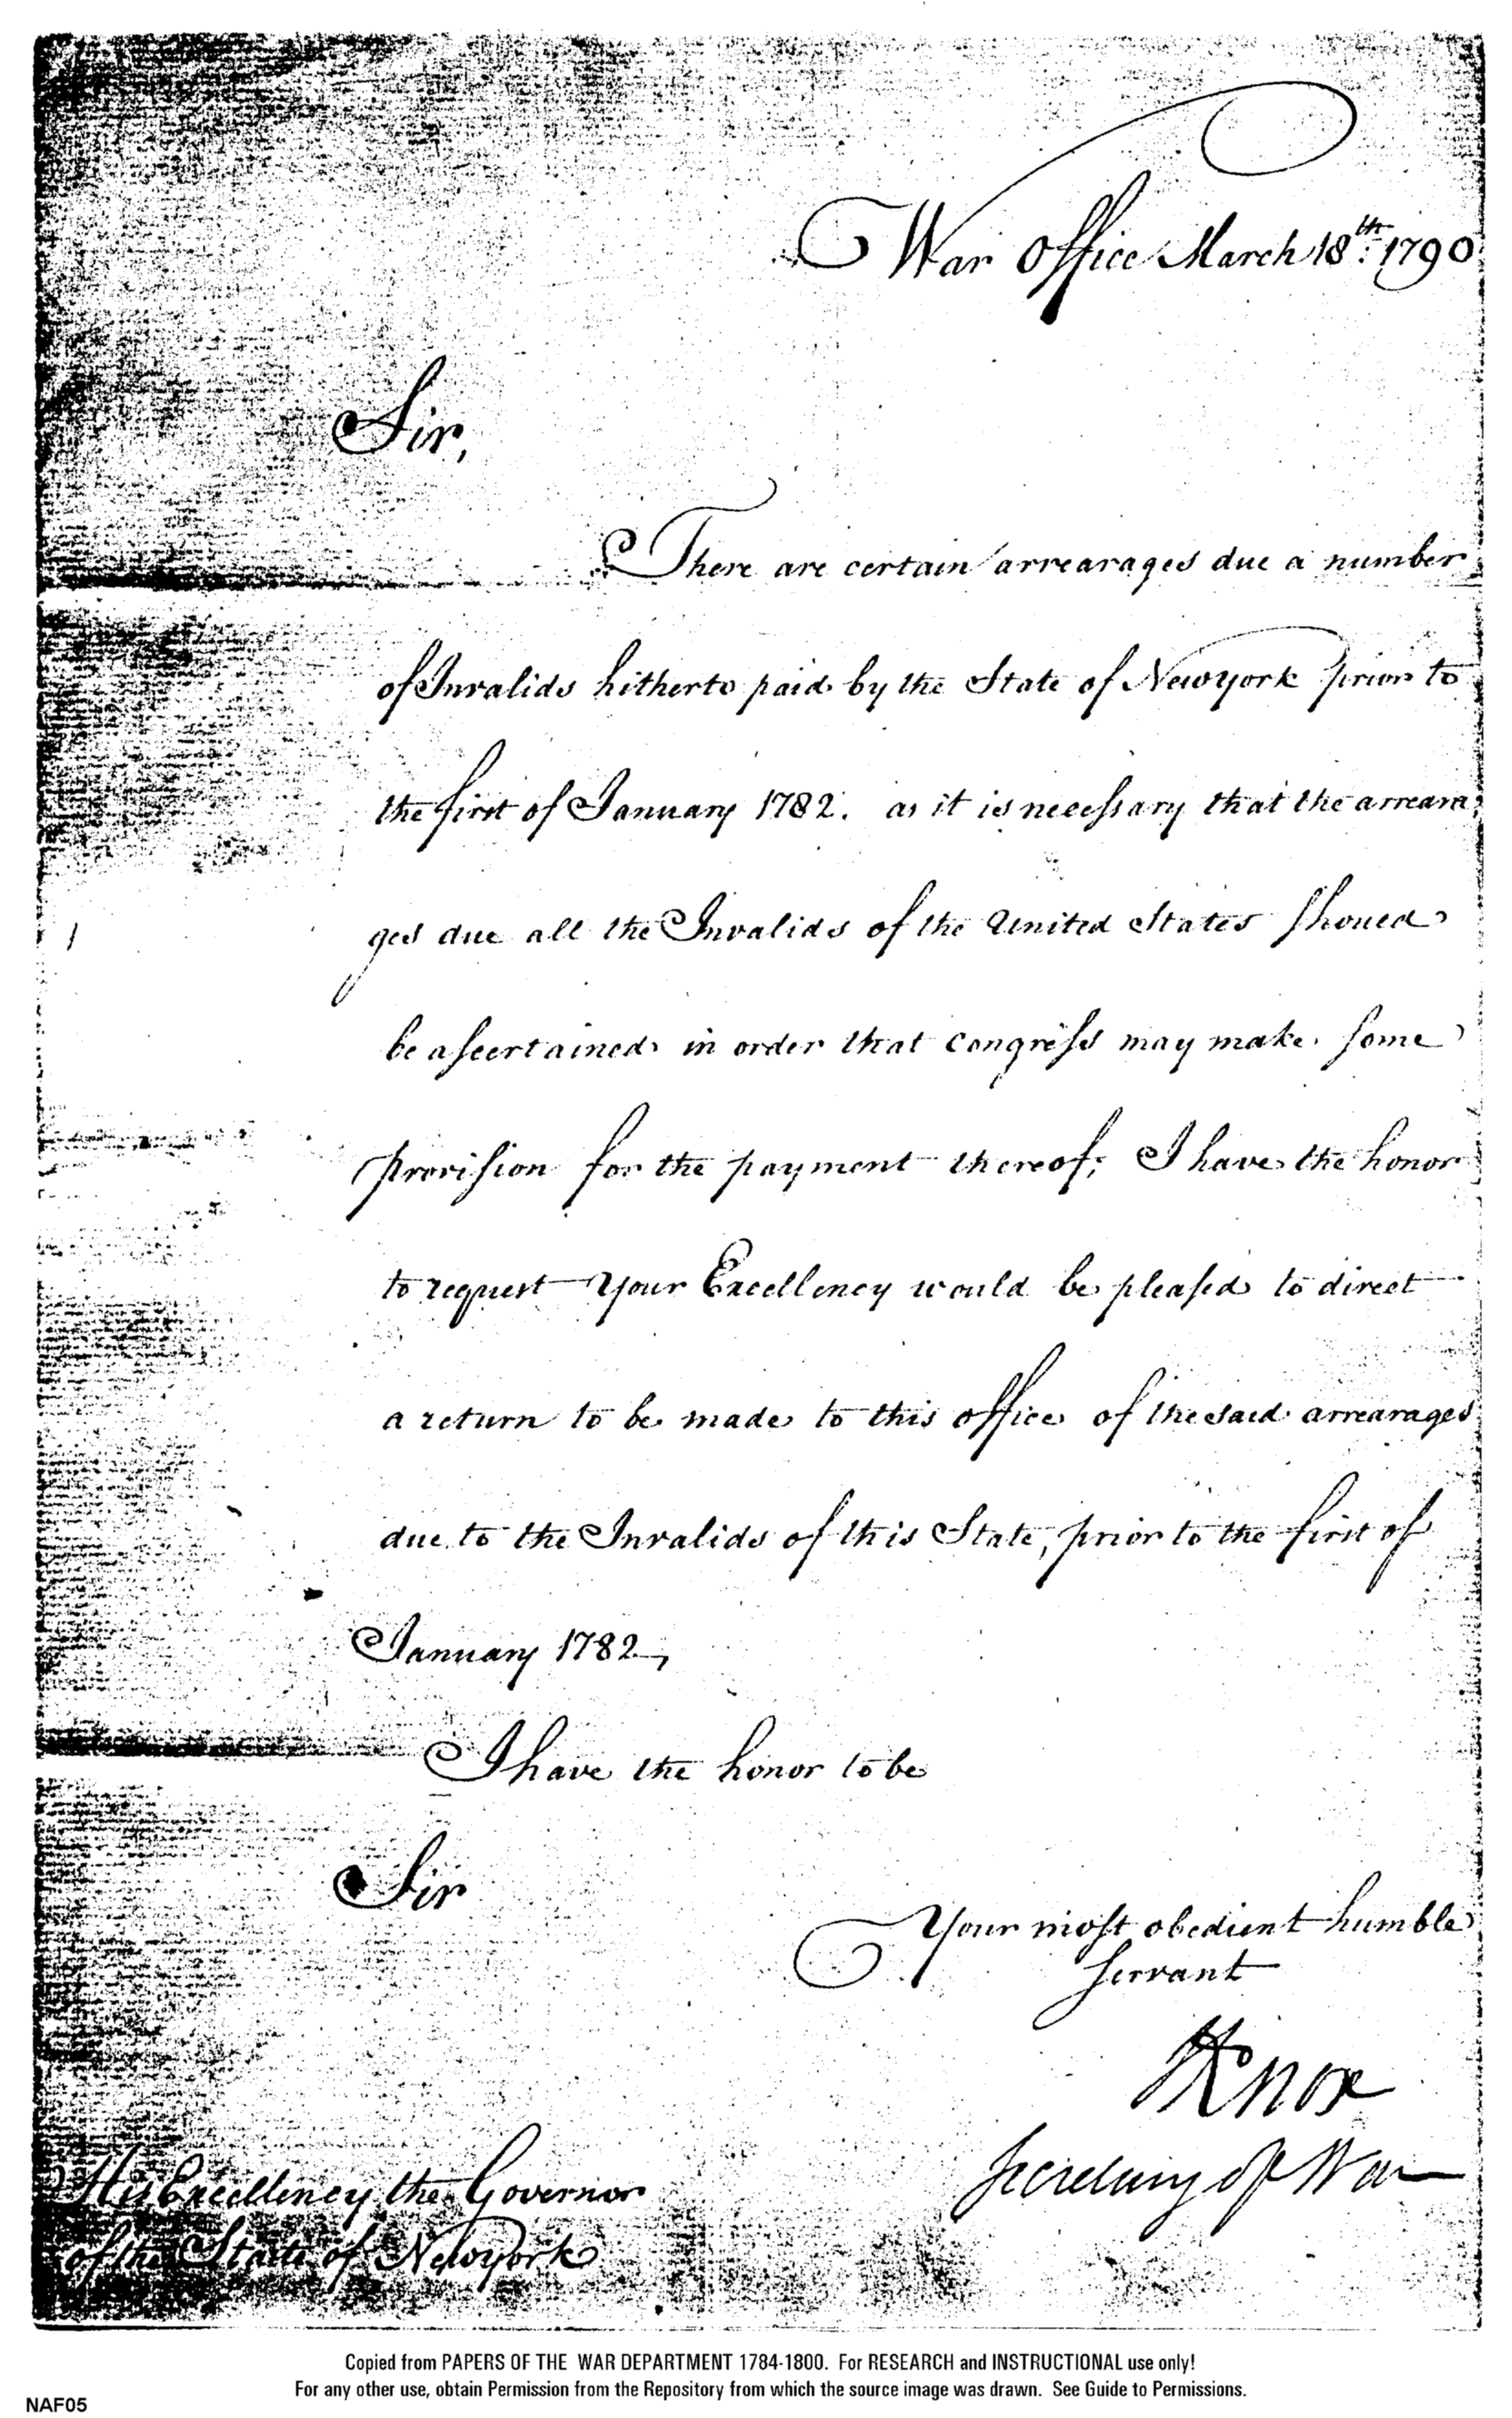 War Office March 18th. 1790
Sir,
There are certain arrearages due a number
of Invalids hitherto paid by the State of Newyork prior to
the first of January 1782. as it is necessary that the arreara,
ges due all the Invalids of the United States Should
be ascertained in order that Congress may make some
provision for the payment thereof; I have the honor
to request Your Excellency would be pleased to direct
a return to be made to this office of the said arrearages
due to the Invalids of this State, prior to the first of
January 1782,
I have the honor to be
Sir
Your most obedient humble
servant
HKnox
Secretary of War
His Excellency the Governor
of the State of Newyork
Copied from PAPERS OF THE WAR DEPARTMENT 1784-1800. For RESEARCH and INSTRUCTIONAL use only!
For any other use, obtain Permission from the Repository from which the source image was drawn. See Guide to Permissions.
NAF05